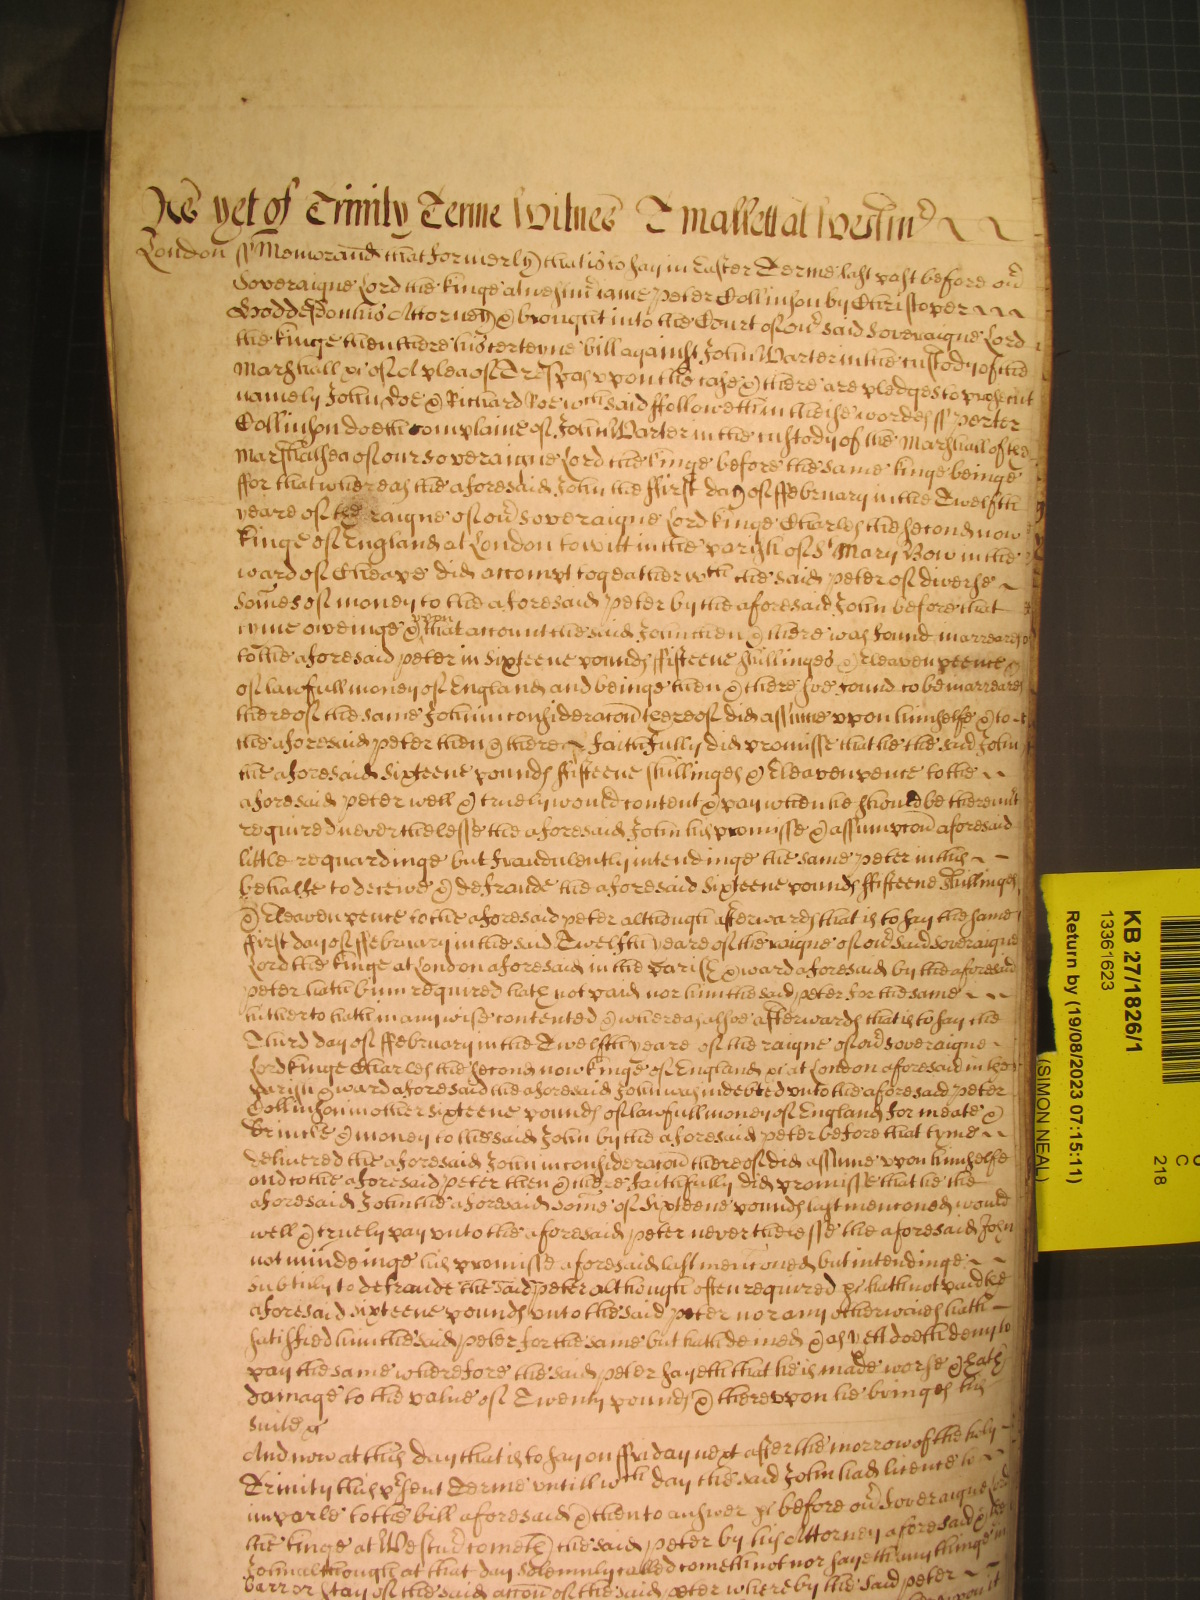 As yet of Trinity Terme Witnes T mallett at Westm
London ss Memorand that formerly that is to say in Easter Terme last past before our
Soveraigne Lord the kinge at westm came Peter Collinson by Christoper
Hoddesdon his Attorney & brought into the Court of our said Soveraigne Lord
the kinge then there his certeyne bill against John Carter in the custody of the
Marshall &c of A plea of Trespas uppon the case & there are pledges to prosecut
namely John Doe & Richard Roe wch said ffolloweth in theise wordes ss Perter
Collinson doeth complaine of John Carter in the custody of the Marshall of the
Marshalsea of our soveraigne Lord the kinge before the same kinge beinge
ffor that whereas the aforesaid John the ffirst day of ffebruary in the Twelfth
yeare of the raigne of our Soveraigne Lord kinge Charles the second now
Kinge of England at London to witt in the parish of St Mary Bow in the
ward of Cheape did accompt togeather wth the said Peter of diverse
somes of money to the aforesaid Peter by the aforesaid John before that
tyme oweinge & uppon that account the said John then & there was found in arreares
to the aforesaid Peter in Sixteene pounds ffifteene shillinges & Eleaven peence
of lawfull money of England and beinge then & there soe found to be in arreares
thereof the same John in consideracon thereof did assume uppon himselfe & to
the aforesaid Peter then & there faithfully did promisse that he the said John
the aforesaid Sixteene pounds ffifteene shillinges & Eleaven pence to the
aforesaid Peter well & truely would content & pay when he should be thereunt
required nevertheless the aforesaid John his promisse & assumpcon aforesaid
little reguardinge but fraudulently intendinge the same Peter in this
behalfe to deceive & defraude the aforesaid Sixteene pounds ffifteene shillinges
& Eleaven pence to the aforesaid Peter although afterwards that is to say the same
ffirst day of ffebruary in the said Twelfth yeare of the raigne of our said soveraigne
Lord the kinge at London aforesaid in the parish & ward aforesaid by the aforesaid
Peter hath binn required hath not paid nor him the said Peter for the same
hitherto hath in any wise contented & whereas alsoe afterwards that is to say the
Third day of ffebruary in the Twelfth yeare of the raigne of our soveraigne
Lord kinge Charles the second now kinge of England &c at London aforesaid in the
parish & ward aforesaid the aforesaid John was indebted unto the aforesaid Peter
Collinson in other sixteene pounds of lawfull money of England for meate &
Drincke & money to the said John by the aforesaid Peter before that tyme
delivered the aforesaid John in consideracon thereof did assume uppon himselfe
and to the aforesaid Peter then & there faithfully did promisse that he the
aforesaid John the aforesaid some of Sixteene pounds last menconed would
well & truely pay unto the aforesaid Peter neverthelesse the aforesaid John
not mindeinge his promisse aforesaid last menconed but intendinge
subtiily to defraude the said Peter although often required &c hath not paid the
aforesaid sixteene pounds unto the said Peter nor any otherwaies hath
satisfied him the said Peter for the same but hath denied & as yett doeth deny to
pay the same wherefore the said Peter sayeth that he is made worse & hath
damage to the value of Twenty pounds & thereuppon he bringes his
suite &c
And now at this day that is to say on ffriday next after the morrow of the holy
Trinity this present Terme untill wch day the said John had licence to
imparle to the bill aforesaid & then to answer &c before our Soveraigne Lord
the kinge at Westm cometh the said Peter by his Attorney aforesaid & the
John although at that day solemnly called cometh not nor sayeth any thinge in
barr or stay of the said accon of the said Peter whereby the said Peter
KB 27/1826/1
13361623
Return by (19/08/2023 07:15:11)
(SIMON NEAL)
C
218